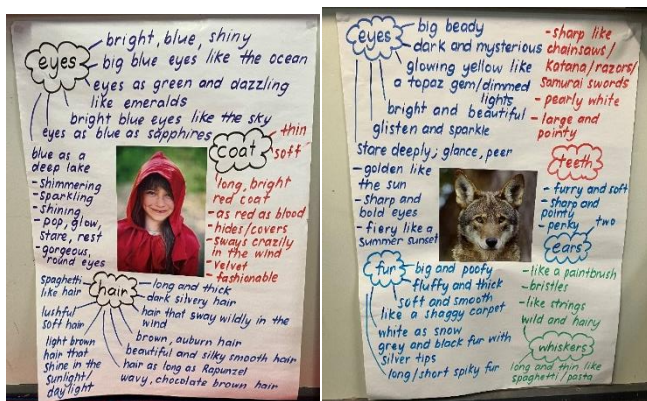 eyes
bright, blue, shiny
big blue eyes like the ocean
eyes as green and dazzling
like emeralds
bright blue eyes like the sky
eyes as blue as sapphires
blue as a
deep lake
- shimmering
- sparkling
- shining
- pop, glow,
stare, rest
- gorgeous,
round eyes
coat
thin
soft
long, bright
red coat
- as red as blood
- hides/covers
- sways crazily
in the wind
- velvet
- fashionable
hair
spaghetti
like hair
lushful
soft hair
light brown
hair that
shine in the
sunlight/
daylight
long and thick
dark silvery hair
hair that sway wildly in the
wind
brown, auburn hair
beautiful and silky smooth hair
hair as long as Rapunzel
wavy, chocolate brown hair
eyes
big beady
dark and mysterious
glowing yellow like
a topaz gem/dimmed
lights
bright and beautiful
glisten and sparkle
stare deeply; glance, peer
- golden like
the sun
- sharp and
bold eyes
- fiery like a
summer sunset
- sharp like
chainsaws/
Katana/razors/
Samurai swords
- pearly white
- large and
pointy
teeth
- furry and soft
- sharp and
pointy
- perky
two
ears
fur
big and poofy
fluffy and thick
soft and smooth
like a shaggy carpet
white as snow
grey and black fur with
silver tips
long/short spiky fur
- like a paintbrush
- bristles
- like strings
wild and hairy
whiskers
long and thin like
spaghetti/pasta